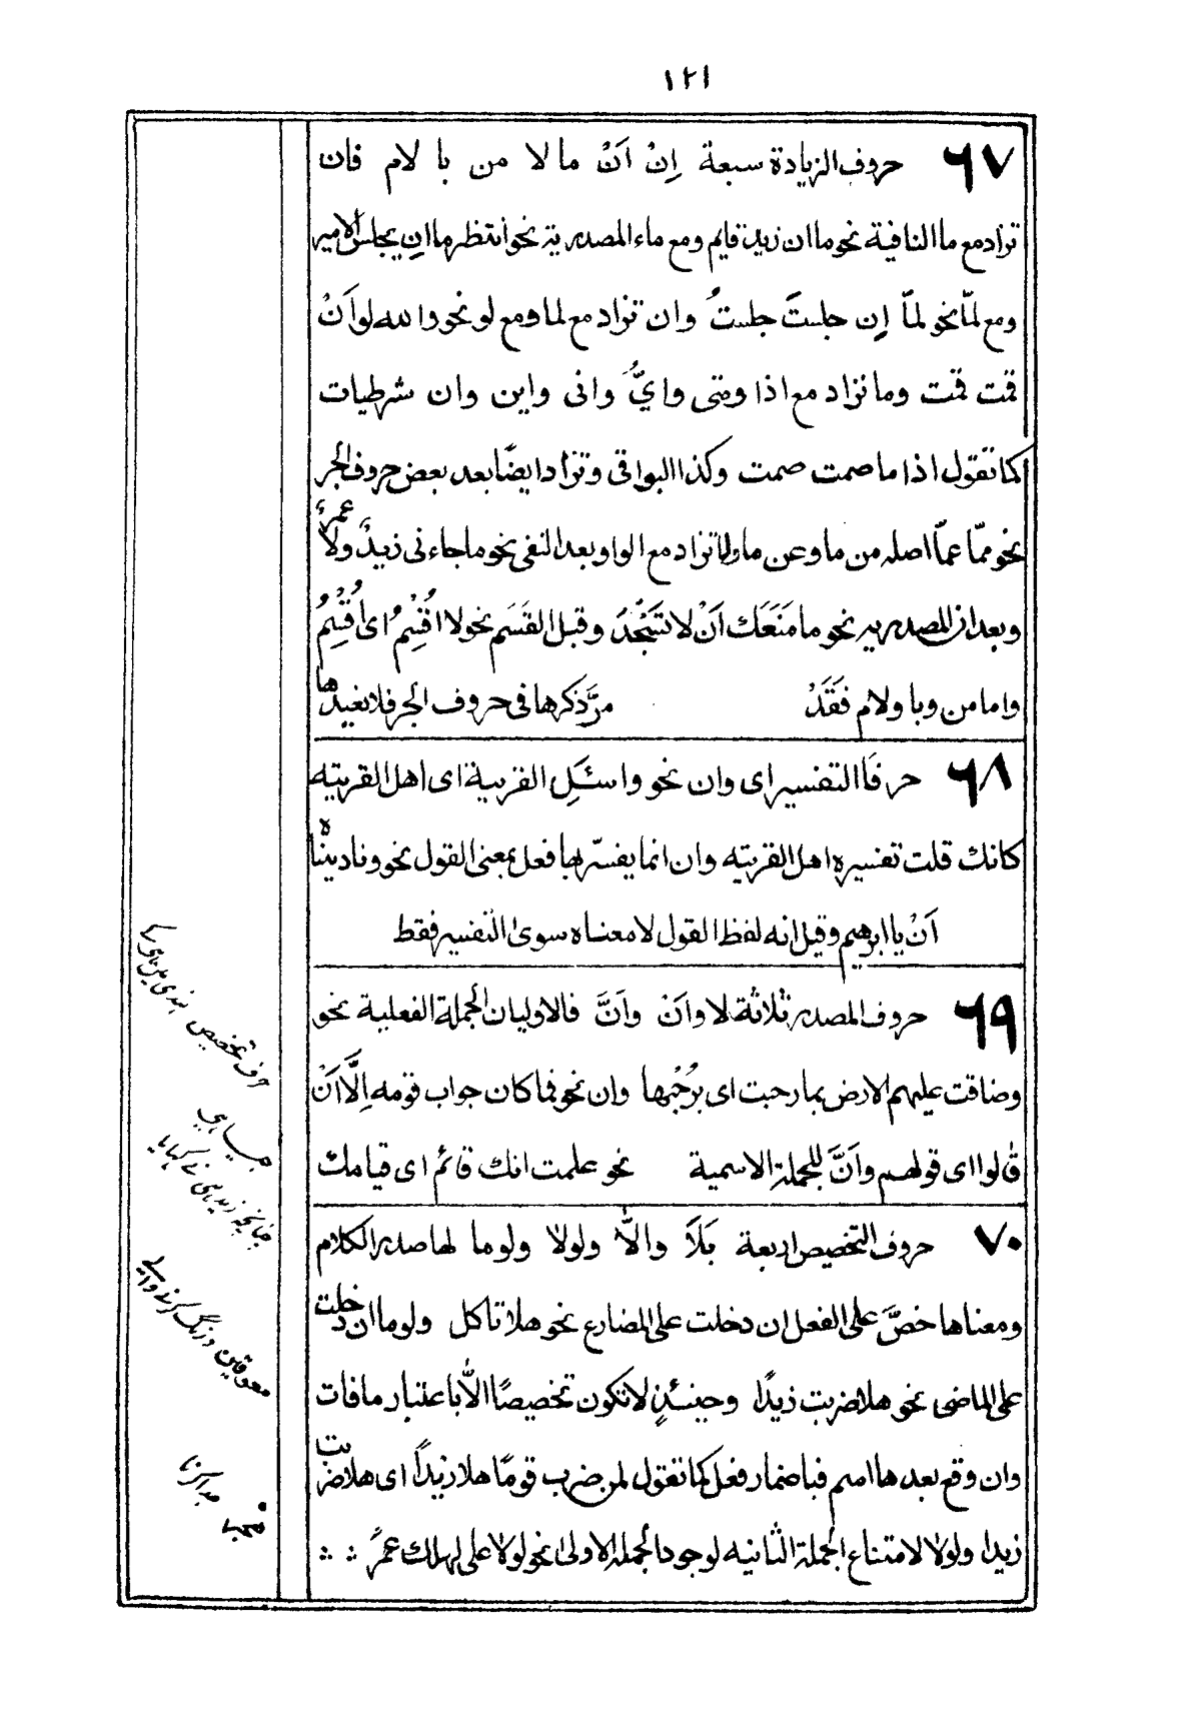 ١٢١
٦٧ حروف الزيادة سبعة اِنْ اَنْ ما لا من با لام فان
تزاد مع ما النافية نحو ما ان زيد قايم ومع ماء المصدرية نحو انتظر ما اِن يجلس الامير
ومع لمّا نحو لمّا اِن جلستَ جلستُ وان تزاد مع لما ومع لو نحو والله لو اَنْ
قمت قمت وما تزاد مع اذا ومتى وايٌّ وانى واين وان شرطيات
كما تقول اذا ما صمت صمت وكذا البواقى وتزاد ايضًا بعد بعض حروف الجر
نحو ممّا عمّا اصله من ما وعن ما ولا تزاد مع الواو بعد النفى نحو ما جاءنى زيدٌ ولا عمرٌ
وبعد ان المصدريه نحو ما مَنَعَكَ اَنْ لا تَسْجُدَ وقبل القَسَم نحو لا اُقْسِمُ اى اُقْسِمُ
واما من وبا ولام فَقَدْ مرَّ ذكرها فى حروف الجر فلا نعيدها
٦٨ حرفَا التفسير اى وان نحو واسئلِ القرية اى اهل القريته
كانك قلت تفسيره اهل القريته وان انما يفسّر بها فعل بمعنى القول نحو وناديْناه
اَنْ يا ابرهيم وقيل انه لفظ القول لا معناه سوى التفسير فقط
٦٩ حروف المصدر ثلاثة لا واَنْ واَنَّ فالاوليان الجملة الفعلية نحو
وضاقت عليهم الارض بما رحبت اى برُحْبها وان نحو فما كان جواب قومه اِلَّا اَنْ
قالوا اى قولهم واَنَّ للجملة الاسمية نحو علمت انك قائم اى قيامك
٧٠ حروف التخصيص اربعة هَلَّا والَّا ولولا ولوما لها صدر الكلام
ومعناها خصَّ على الفعل ان دخلت على المضارع نحو هلا تاكل ولوما ان دخلت
على الماضى نحو هلا ضربت زيدًا وحينئذٍ لا تكون تخصيصًا الّا باعتبار ما فات
وان وقع بعدها اسم فباضمار فعل كما تقول لمن ضرب قومًا هلا زيدًا اى هلا ضربت
زيدا ولولا لامتناع الجملة الثانيه لوجود الجملة الاولى نحو لولا على لهلك عمرٌ
حرف تخصيص